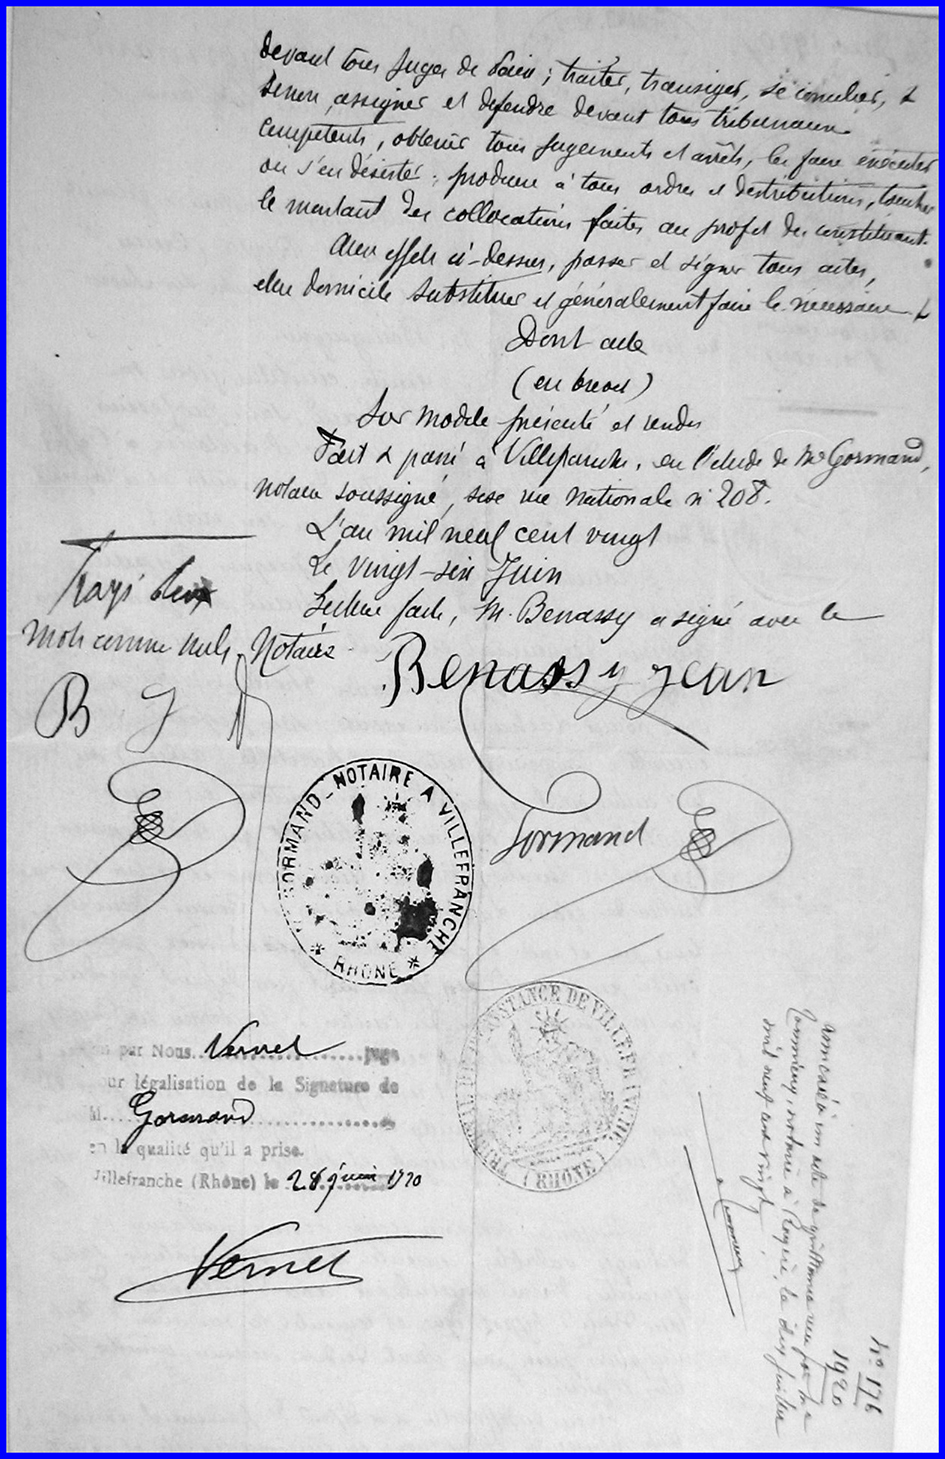 devant tous Juges de Paix ; traiter, transiger, se concilier, &
sinon, assigner et défendre devant tous tribunaux
compétents, obtenir tous jugements et arrêts, les faire exécuter
ou s'en désister ; produire à tous ordres et distributions, toucher
le montant des collocations faites au profit du constituant.
Aux effets ci-dessus, passer et signer tous actes,
élire domicile substituer et généralement faire le nécessaire &
Dont acte
(en brevet)
Sur modèle présenté et rendu
Fait & passé à Villefranche, en l'étude de Me Gormand,
notaire soussigné, sise rue Nationale n° 208.
L'an mil neuf cent vingt
Le vingt-six Juin
Lecture faite, M. Benassy a signé avec le
Notaire
Rayé deux
mots comme nuls.
B J
Benassy Jean
Gormand
GORMAND - NOTAIRE A VILLEFRANCHE
* RHÔNE *
par Nous Vernet juge
our légalisation de la Signature de
M. Gormand
en la qualité qu'il a prise.
Villefranche (Rhône) le 28 juin 1920
Vernet
INSTANCE DE VILLEFRANCHE
(RHÔNE)
à un acte de quittance reçu par Me
notaire à Royère, le dix juillet
mil neuf cent vingt
No 176
1920